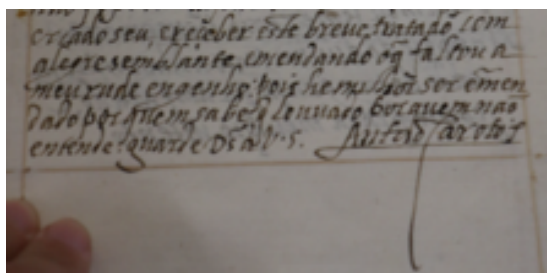 criado seu, e receber este breve tratado com
alegre semblante, emendando o q̃ faltou a
meu rude engenho, pois he milhor ser emen
dado por quem sabe q̃ louvado por quem nao
entende. guarde Ds a V. S.